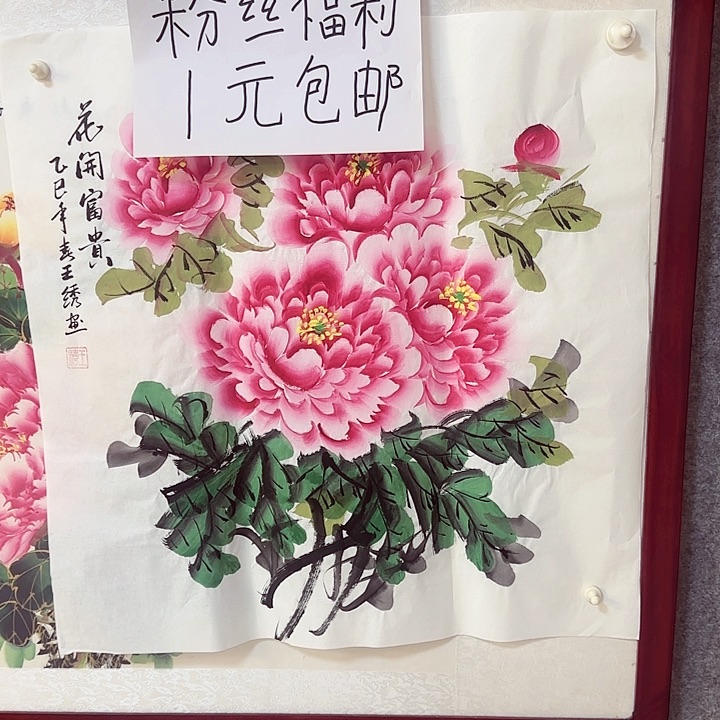 粉丝福利
1元包邮
花開富貴
乙巳年春王绣画